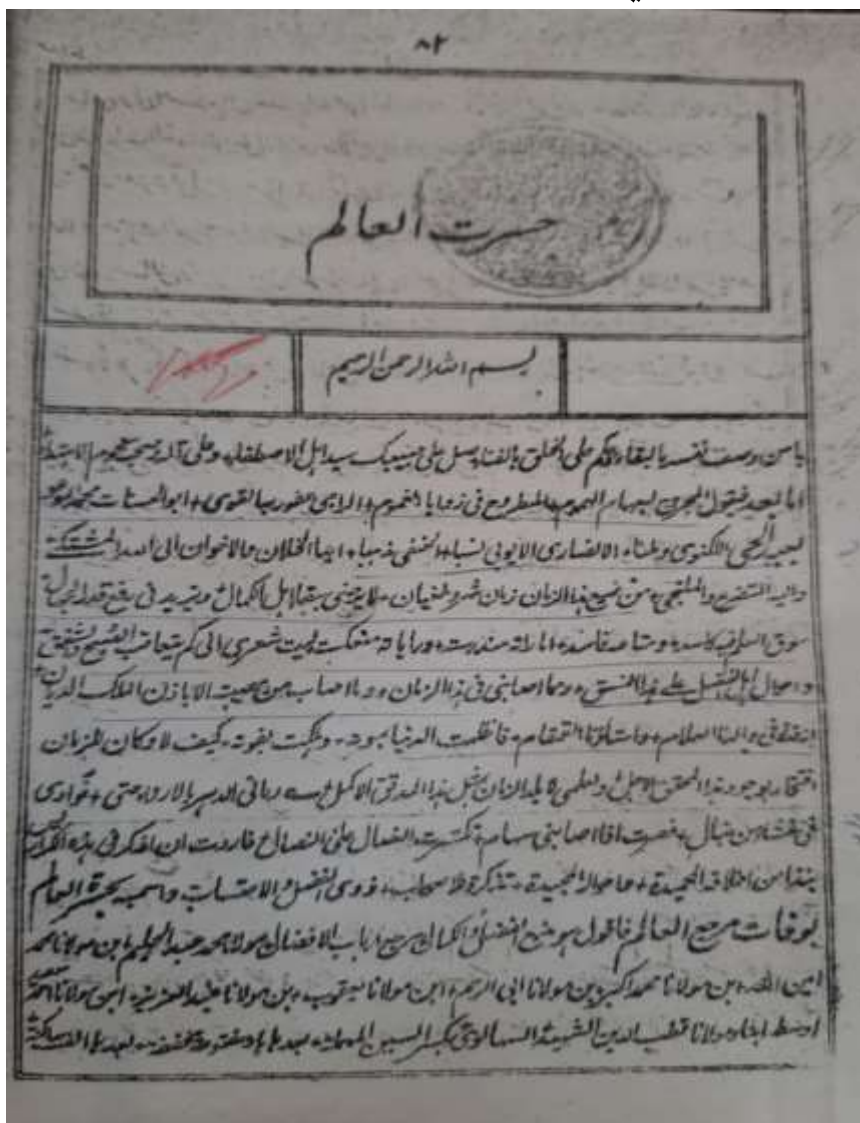 ٨٢
حسرت العالم
بسم الله الرحمن الرحيم
يا من وصف نفسه بالبقاء وحكم على الخلق بالفناء صل على حبيبك سيد اهل الاصطفاء وعلى آله وصحبه نجوم الاهتداء
اما بعد فيقول المجروح بسهام الهموم المطروح في زوايا الغموم الراجي عفو ربه القوي ابو الحسنات محمد المدعو
بعبد الحي اللكنوي وطنا الانصاري الايوبي نسبا الحنفي مذهبا ايها الخلان والاخوان الى الله المشتكى
واليه المتضرع والملتجى من صنيع هذا الزمان زمان شر وطغيان لا يرضى ببقاء اهل الكمال ويزيد في رفع قدر الجهال
سوق العلم فيه كاسدة ومتاعه فاسدة وراياته منعكسة ليت شعري الى كم يعاتب
واحوال اهل الفضل على هذا النسق ومما اصابني في هذا الزمان وما اصاب من مصيبة الا باذن الملك الديان
والدنا العلام واستاذنا القمقام فاظلمت الدنيا بموته وبكت بفوته كيف لا وكان للزمان
افتخار بوجود هذا المحقق الاجل ولعلمي لا يلد الزمان بمثل هذا المدقق الاكمل رماني الدهر بالارزاء حتى فؤادي
في غشاء من نبال فصرت اذا اصابتني سهام تكسرت النصال على النصال فاردت ان اذكر في هذه
من اخلاقه الحميدة واحواله المجيدة تذكرة للاصحاب ذوي الفضل والاحتساب واسميه بحسرة العالم
بوفات مرجع العالم فاقول هو منبع الفضل والكمال مرجع ارباب الافضال مولانا محمد عبد الحليم ابن مولانا محمد
امين الله بن مولانا محمد اكبر بن مولانا ابي الرحم ابن مولانا يعقوب بن مولانا عبد العزيز ابن مولانا
اوسط ابناء مولانا قطب الدين الشهيد السهالوي بكسر السين المهملة بعدها